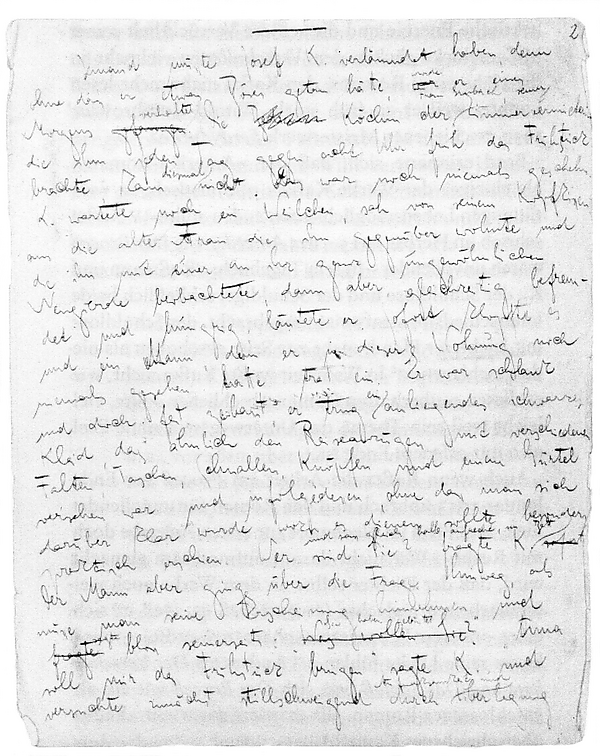 2
Jemand musste Josef K. verläumdet haben, denn
ohne dass er etwas Böses getan hätte, wurde er eines
Morgens verhaftet. Die Köchin seiner Zimmervermieterin,
die ihm jeden Tag gegen acht Uhr früh das Frühstück
brachte kam diesmal nicht. Das war noch niemals geschehn.
K. wartete noch ein Weilchen, sah von seinem Kopfkissen
aus die alte Frau die ihm gegenüber wohnte und
die ihn mit einer an ihr ganz ungewöhnlichen
Neugierde beobachtete, dann aber, gleichzeitig befrem-
det und hungrig, läutete er. Sofort klopfte es
und ein Mann, den er in dieser Wohnung noch
niemals gesehen hatte trat ein. Er war schlank
und doch fest gebaut, er trug ein anliegendes schwarzes
Kleid, das ähnlich den Reiseanzügen mit verschiedenen
Falten, Taschen, Schnallen, Knöpfen und einem Gürtel
versehen war und infolgedessen, ohne dass man sich
darüber klar wurde, wozu es dienen sollte, besonders
praktisch erschien. „Wer sind Sie?" fragte K. und sass gleich halb aufrecht im Bett
Der Mann aber ging über die Frage hinweg, als
müsse man seine Erscheinung hinnehmen und
sagte bloss seinerseits: „Sie haben geläutet?" „Anna
soll mir das Frühstück bringen" sagte K. und
versuchte zunächst stillschweigend durch Aufmerksamkeit und Überlegung